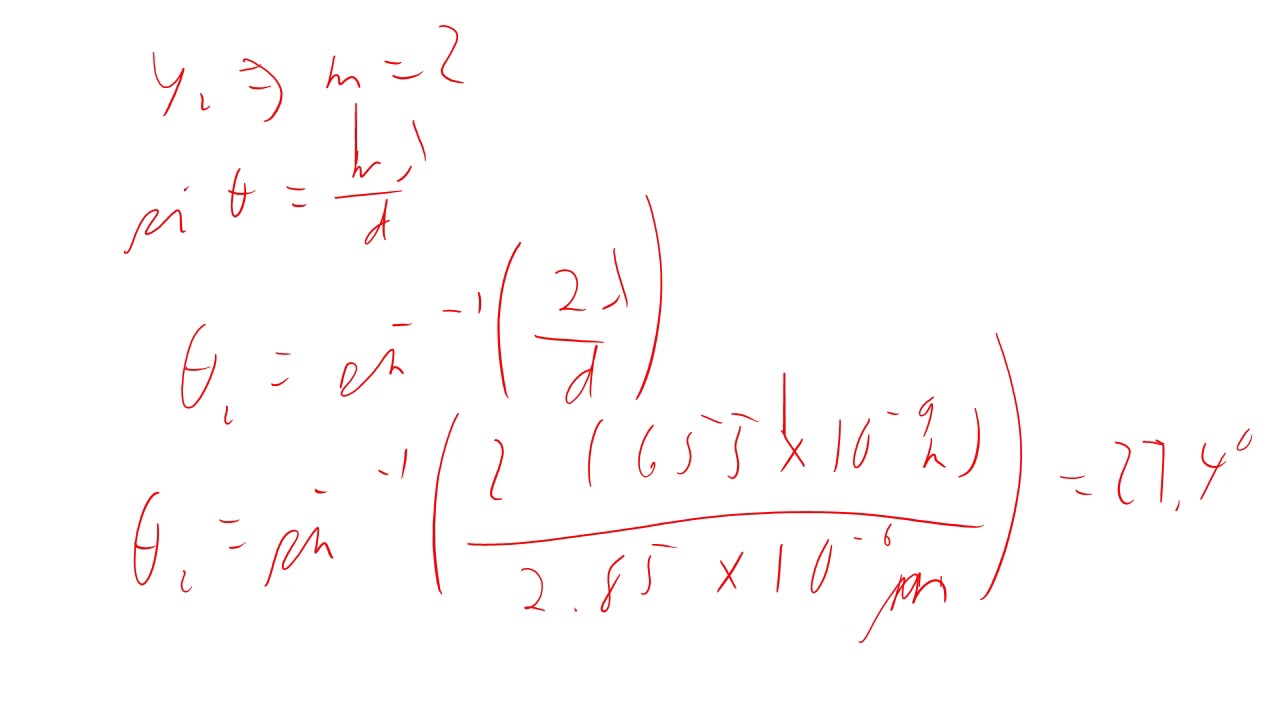 y₂ ⇒ m = 2
sin θ = mλ/d
θ₂ = sin⁻¹(2λ/d)
θ₂ = sin⁻¹(2 (655 × 10⁻⁹ m) / 2.85 × 10⁻⁶ m) = 27.4°